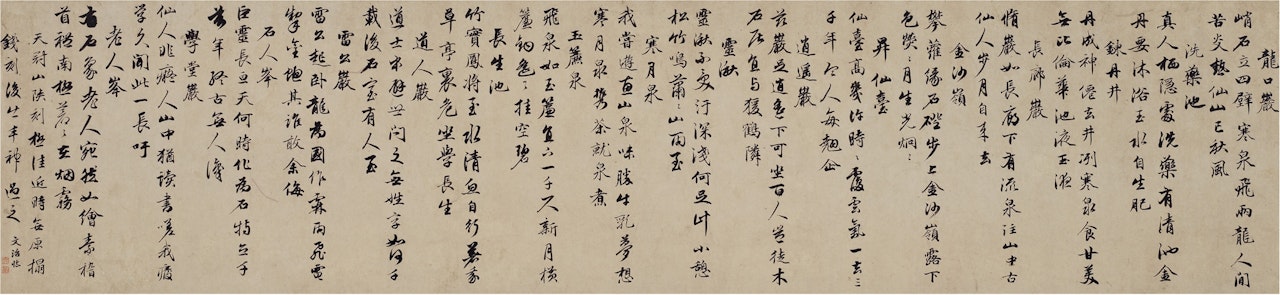 龍口巖
峭石立四壁寒泉飛兩龍人間
苦炎熱仙山已秋風
洗藥池
真人栖隱處洗藥有清池金
丹要沐浴玉水自生肥
鍊丹井
丹成神僊去井冽寒泉食甘美
無比倫華池咽玉液
長廊巖
脩巖如長廊下有流泉注山中古
仙人步月自來去
金沙嶺
攀蘿緣石磴步上金沙嶺露下
色熒熒月生光炯炯
昇仙臺
仙臺高幾許時時覆雲氣一去三
千年令人每翹企
逍遙巖
茲巖足逍遙下可坐百人豈徒木
石居直與猿鶴隣
靈湫
靈湫不受汙深淺何足計小憩
松竹鳴蕭蕭山雨至
寒月泉
我嘗遊惠山泉味勝牛乳夢想
寒月泉携茶就泉煮
玉簾泉
飛泉如玉簾直下一千尺新月橫
簾鉤遙遙挂空碧
長生池
竹實鳳將至水清魚自行著我
草亭裏危坐學長生
道人巖
道士本避世問之無姓字如何千
載後石室有人至
雷公巖
雷公起臥龍為國作霖雨飛電
掣金蛇其誰敢余侮
石人峯
巨靈長亘天何時化為石特立千
萬年終古無人識
學堂巖
仙人非癡人山中猶讀書嗟我廢
學久聞此一長吁
老人峯
有石象老人宛然如繪素稽
首禮南極蒼蒼在烟霧
天冠山陝刻極佳近時無原搨
錢刻後此丰神過之 文治臨